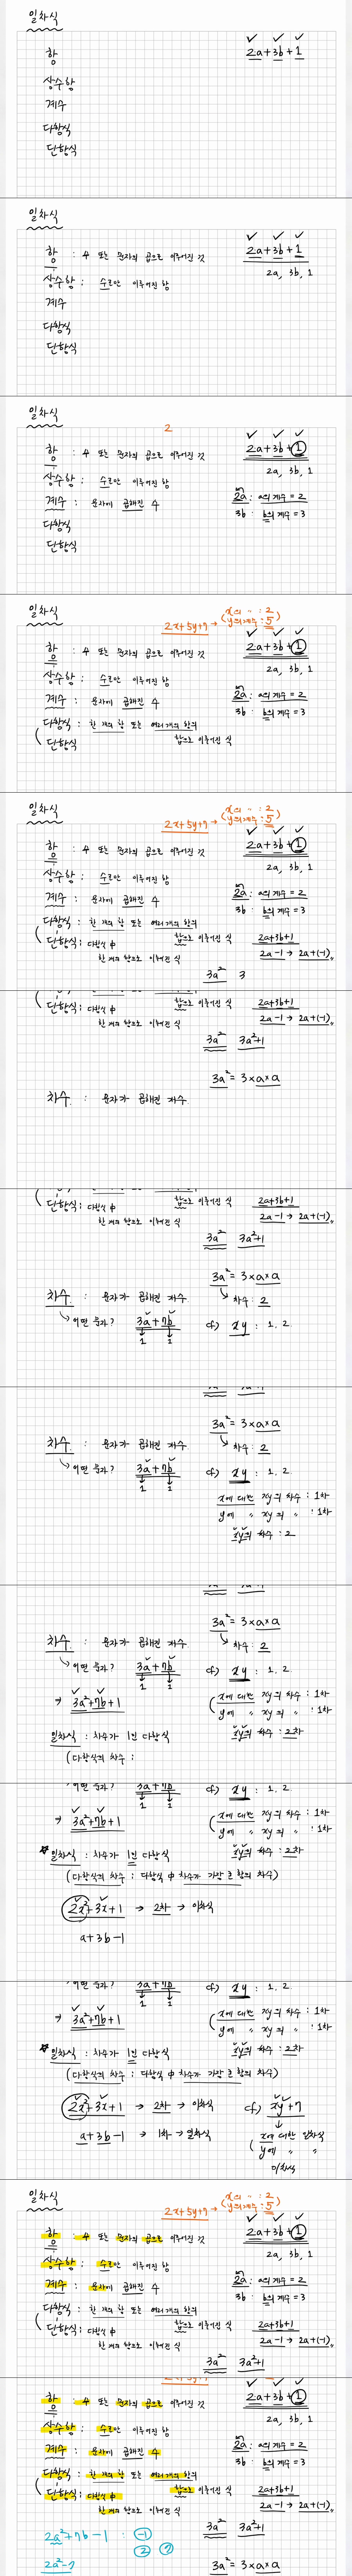 일차식
항
2a+3b+1
상수항
계수
다항식
단항식
일차식
항 : 수 또는 문자의 곱으로 이루어진 것
2a+3b+1
상수항 : 수로만 이루어진 항
2a, 3b, 1
계수
다항식
단항식
일차식
2
항 : 수 또는 문자의 곱으로 이루어진 것
2a+3b+1
상수항 : 수로만 이루어진 항
2a, 3b, 1
계수 : 문자에 곱해진 수
2a : a의 계수 = 2
다항식
3b : b의 계수 = 3
단항식
일차식
2x+5y+7 → ( x의 〃 : 2
y의 계수 : 5 )
항 : 수 또는 문자의 곱으로 이루어진 것
2a+3b+1
상수항 : 수로만 이루어진 항
2a, 3b, 1
계수 : 문자에 곱해진 수
2a : a의 계수 = 2
3b : b의 계수 = 3
다항식 : 한 개의 항 또는 여러개의 항의
합으로 이루어진 식
단항식
일차식
2x+5y+7 → ( x의 〃 : 2
y의 계수 : 5 )
항 : 수 또는 문자의 곱으로 이루어진 것
2a+3b+1
상수항 : 수로만 이루어진 항
2a, 3b, 1
계수 : 문자에 곱해진 수
2a : a의 계수 = 2
3b : b의 계수 = 3
다항식 : 한 개의 항 또는 여러개의 항의
합으로 이루어진 식
2a+3b+1
단항식 : 다항식 中
2a-1 → 2a+(-1)
한 개의 항으로 이루어진 식
3a² 3
단항식 : 다항식 中 합으로 이루어진 식
2a+3b+1
한 개의 항으로 이루어진 식
2a-1 → 2a+(-1)
3a² 3a²+1
3a² = 3×a×a
차수 : 문자가 곱해진 개수
단항식 : 다항식 中 합으로 이루어진 식
2a+3b+1
한 개의 항으로 이루어진 식
2a-1 → 2a+(-1)
3a² 3a²+1
3a² = 3×a×a
차수 : 문자가 곱해진 개수
차수 : 2
어떤 문자? 3a+7b
cf) xy : 1, 2
1 1
3a² = 3×a×a
차수 : 문자가 곱해진 개수
차수 : 2
어떤 문자? 3a+7b
cf) xy : 1, 2
1 1
x에 대한 xy의 차수 : 1차
y에 〃 xy의 〃 : 1차
xy의 차수 : 2
3a² = 3×a×a
차수 : 문자가 곱해진 개수
차수 : 2
어떤 문자? 3a+7b
cf) xy : 1, 2
1 1
→ 3a²+7b+1
( x에 대한 xy의 차수 : 1차
y에 〃 xy의 〃 : 1차
일차식 : 차수가 1인 다항식
xy의 차수 : 2차
(다항식의 차수 :
어떤 문자? 3a+7b
cf) xy : 1, 2
1 1
→ 3a²+7b+1
( x에 대한 xy의 차수 : 1차
y에 〃 xy의 〃 : 1차
일차식 : 차수가 1인 다항식
xy의 차수 : 2차
(다항식의 차수 : 다항식 中 차수가 가장 큰 항의 차수)
2x²+3x+1 → 2차 → 이차식
a+3b-1
어떤 문자? 3a+7b
cf) xy : 1, 2
1 1
→ 3a²+7b+1
( x에 대한 xy의 차수 : 1차
y에 〃 xy의 〃 : 1차
일차식 : 차수가 1인 다항식
xy의 차수 : 2차
(다항식의 차수 : 다항식 中 차수가 가장 큰 항의 차수)
2x²+3x+1 → 2차 → 이차식
cf) xy+7
a+3b-1 → 1차 → 일차식
( x에 대한 일차식
y에 〃 〃
이차식
일차식
2x+5y+7 → ( x의 〃 : 2
y의 계수 : 5 )
항 : 수 또는 문자의 곱으로 이루어진 것
2a+3b+1
상수항 : 수로만 이루어진 항
2a, 3b, 1
계수 : 문자에 곱해진 수
2a : a의 계수 = 2
3b : b의 계수 = 3
다항식 : 한 개의 항 또는 여러개의 항의
합으로 이루어진 식
2a+3b+1
단항식 : 다항식 中
2a-1 → 2a+(-1)
한 개의 항으로 이루어진 식
3a² 3a²+1
항 : 수 또는 문자의 곱으로 이루어진 것
2a+3b+1
상수항 : 수로만 이루어진 항
2a, 3b, 1
계수 : 문자에 곱해진 수
2a : a의 계수 = 2
3b : b의 계수 = 3
다항식 : 한 개의 항 또는 여러개의 항의
합으로 이루어진 식
2a+3b+1
단항식 : 다항식 中
2a-1 → 2a+(-1)
한 개의 항으로 이루어진 식
3a² 3a²+1
2a²+7b-1 : -1
2 7
2a²-7
3a² = 3×a×a